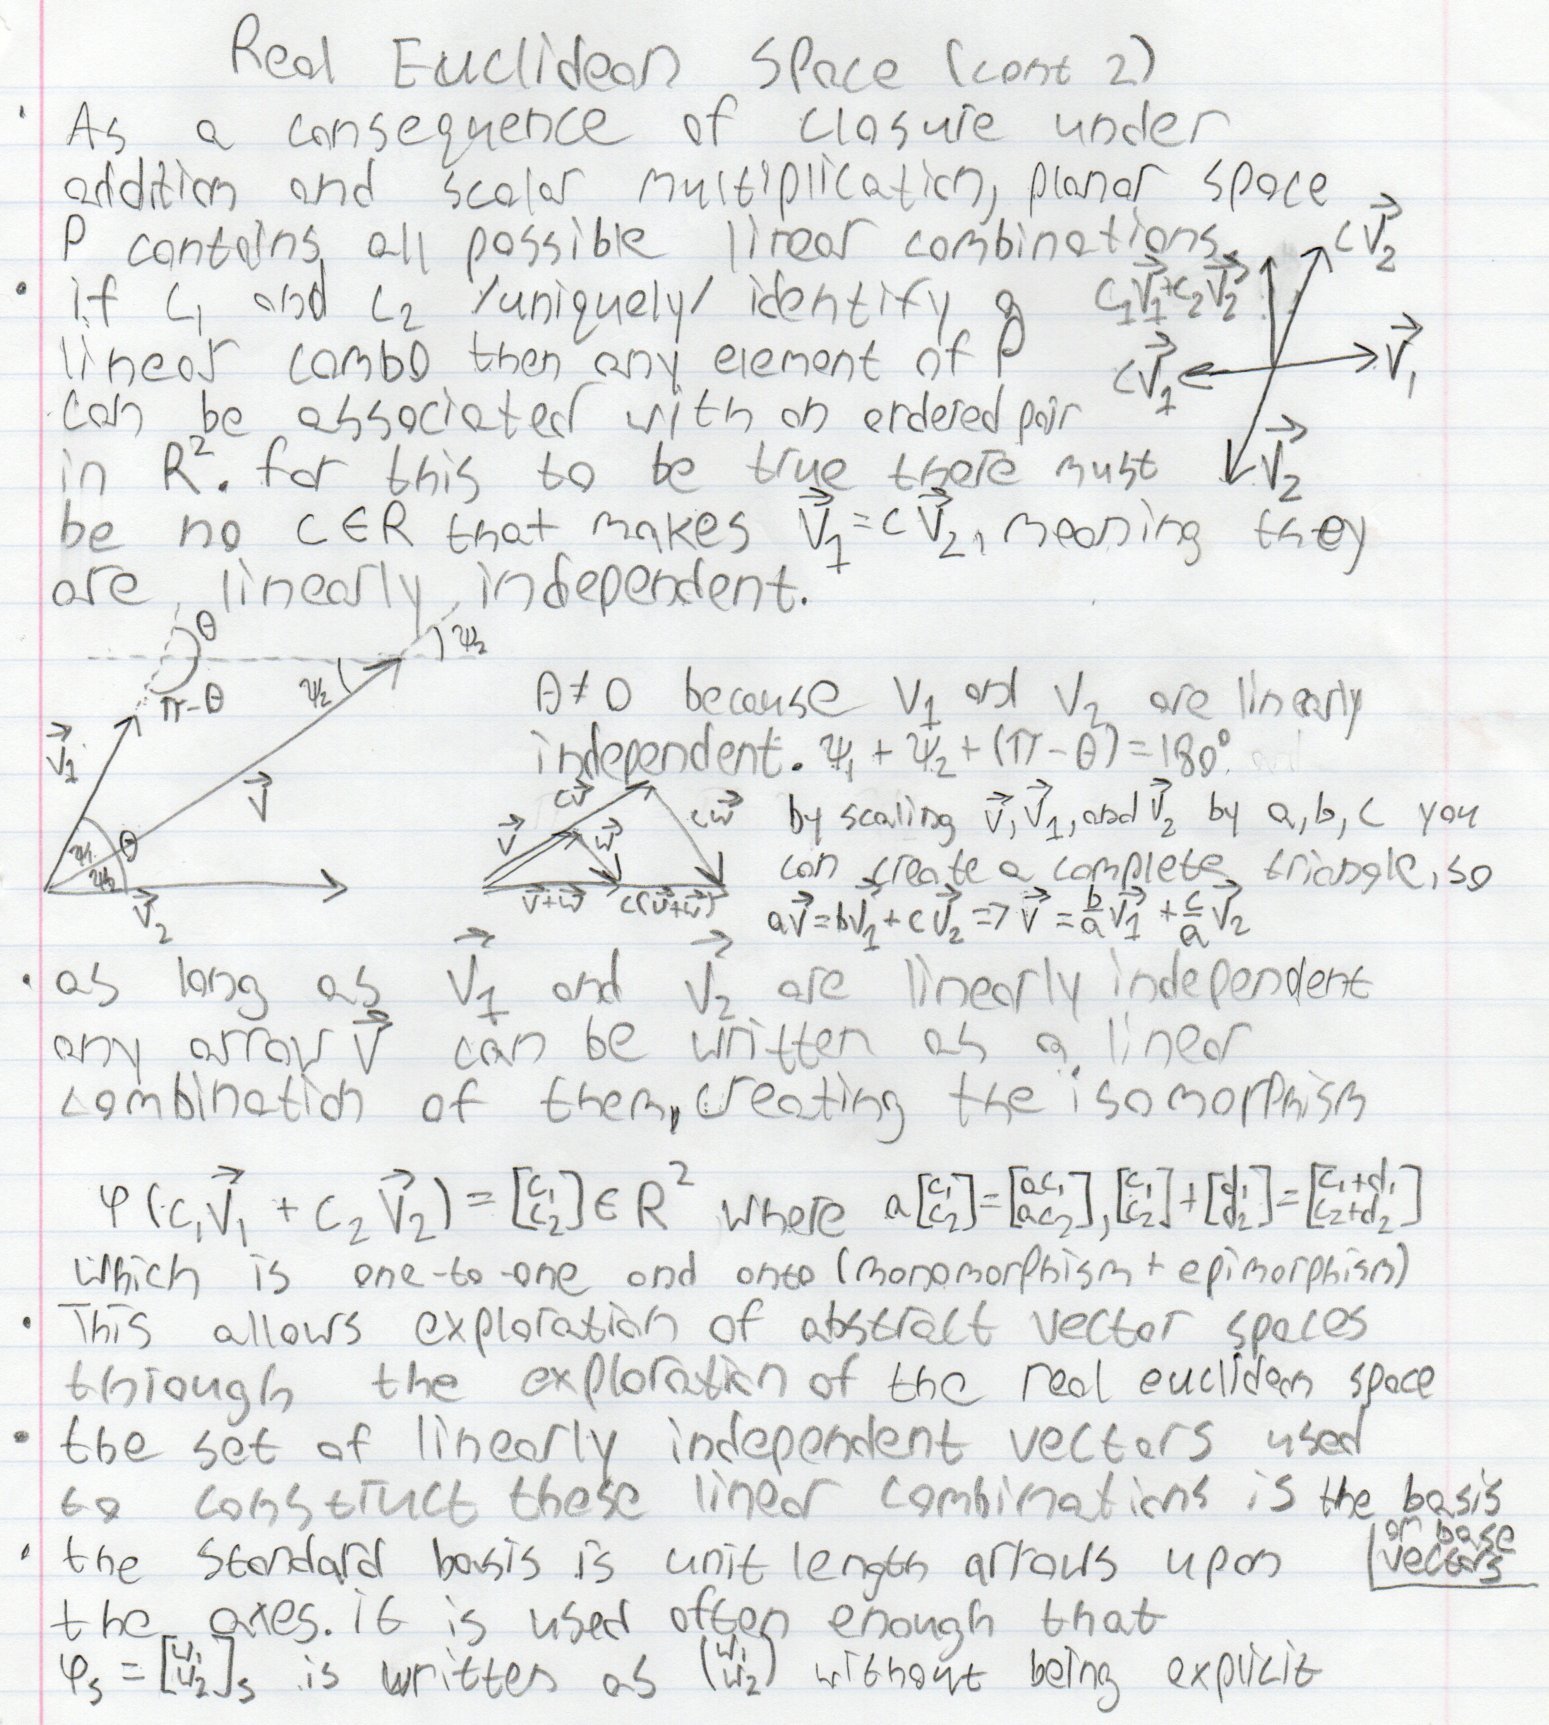 Real Euclidean Space (cont 2)
As a consequence of closure under
addition and scalar multiplication, planar space
P contains all possible linear combinations.
if c₁ and c₂ /uniquely/ identify a
linear combo then any element of P
can be associated with an ordered pair
in R². for this to be true there must
be no c∈R that makes V⃗₁=cV⃗₂, meaning they
are linearly independent.
cV⃗₂
c₁V⃗₁+c₂V⃗₂
cV⃗₁
V⃗₁
V⃗₂
θ
ψ₂
ψ₂
π-θ
V⃗₁
V⃗
ψ₁
θ
ψ₂
V⃗₂
θ≠0 because V₁ and V₂ are linearly
independent. ψ₁+ψ₂+(π-θ)=180°
cv⃗
v⃗
w⃗
cw⃗
v⃗+w⃗
c(v⃗+w⃗)
by scaling v⃗, V⃗₁, and V⃗₂ by a, b, c you
can create a complete triangle, so
aV⃗=bV⃗₁+cV⃗₂ => V⃗ = b/a V⃗₁ + c/a V⃗₂
as long as V⃗₁ and V⃗₂ are linearly independent
any arrow V⃗ can be written as a linear
combination of them, creating the isomorphism
φ(c₁V⃗₁ + c₂V⃗₂) = [c₁ c₂] ∈ R² where a[c₁ c₂]=[ac₁ ac₂], [c₁ c₂]+[d₁ d₂]=[c₁+d₁ c₂+d₂]
which is one-to-one and onto (monomorphism + epimorphism)
This allows exploration of abstract vector spaces
through the exploration of the real euclidean space
the set of linearly independent vectors used
to construct these linear combinations is the basis
or base
vectors
the standard basis is unit length arrows upon
the axes. it is used often enough that
φₛ = [w₁ w₂]ₛ is written as (w₁ w₂) without being explicit